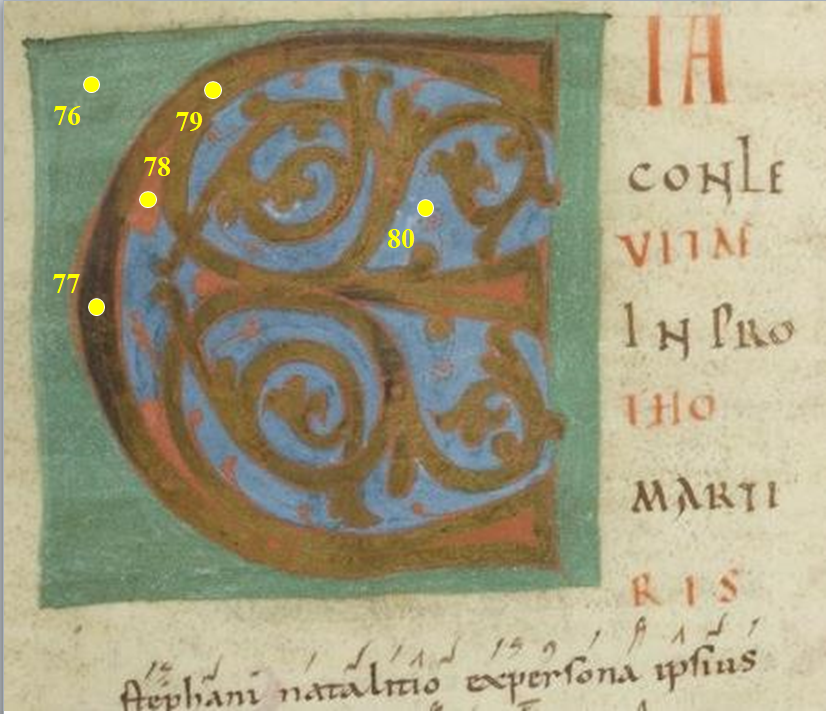 E
IA
CONLE
VITAE
IN PRO
THO
MARTI
RIS
stephani natalitio expersona ipsius
76
79
78
77
80